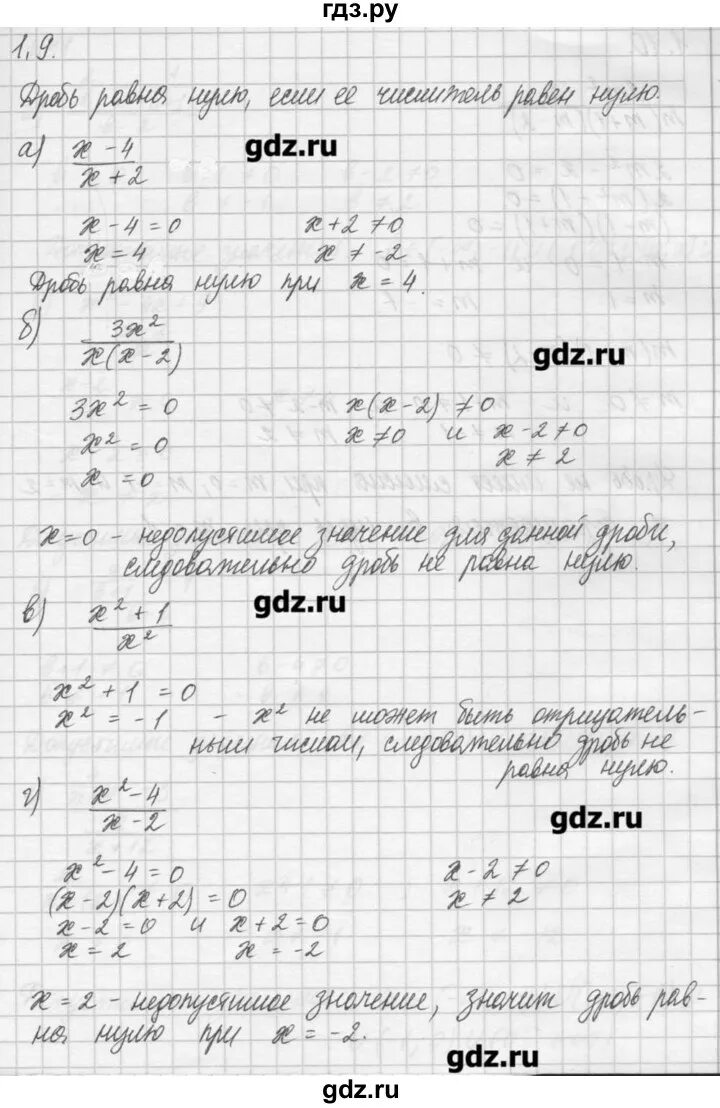 гдз.ру
1.9.
Дробь равна нулю, если ее числитель равен нулю.
а) x - 4 / x + 2
gdz.ru
x - 4 = 0 x + 2 ≠ 0
x = 4 x ≠ -2
Дробь равна нулю при x = 4.
б) 3x² / x(x - 2)
gdz.ru
3x² = 0 x(x - 2) ≠ 0
x² = 0 x ≠ 0 и x - 2 ≠ 0
x = 0 x ≠ 2
x = 0 - недопустимое значение для данной дроби,
следовательно дробь не равна нулю.
gdz.ru
в) x² + 1 / x²
x² + 1 = 0
x² = -1 - x² не может быть отрицатель-
ным числом, следовательно дробь не
равна нулю.
г) x² - 4 / x - 2
gdz.ru
x² - 4 = 0 x - 2 ≠ 0
(x - 2)(x + 2) = 0 x ≠ 2
x - 2 = 0 и x + 2 = 0
x = 2 x = -2
x = 2 - недопустимое значение, значит дробь рав-
на нулю при x = -2.
gdz.ru
gdz.ru